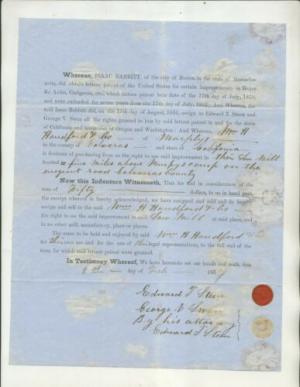 Whereas, ISAAC BABBITT, of the city of Boston in the state of Massachusetts, did obtain letters patent of the United States for certain improvements in Boxes for Axles, Gudgeons, etc., which letters patent bear date of the 17th day of July, 1839,
and were extended for seven years from the 17th day of July, 1853; And Whereas, the
said Isaac Babbitt did, on the day of August, 1854, assign to Edward T. Steen and
George V. Swan all the rights granted to him by said letters patent in and for the state
of California and territories of Oregon and Washington: And Whereas, Wm H
Handford & Co of Murphys in the
county of Calaveras and state of California
is desirous of purchasing from us the right to use said improvement in their Saw Mill
located five miles above Murphys camp on the
road Calaveras County
Now this Indenture Witnesseth, That for and in consideration of the
sum of Fifty dollars, to us in hand paid,
the receipt whereof is hereby acknowledged, we have assigned and sold and do hereby assign
and sell to the said Wm H Handford & Co
the right to use the said improvement in said Saw Mill at said place, and
in no other mill, manufactory, place or places.
The same to be held and enjoyed by said Wm H Handford & Co
for their own use and for the use of their legal representatives, to the full end of the
term for which said letters patent were granted.
In Testimony Whereof, We have hereunto set our hands and seals, this
8th day of Feb 185
Edward T Steen
George V Swan
By his atty
Edward T Steen